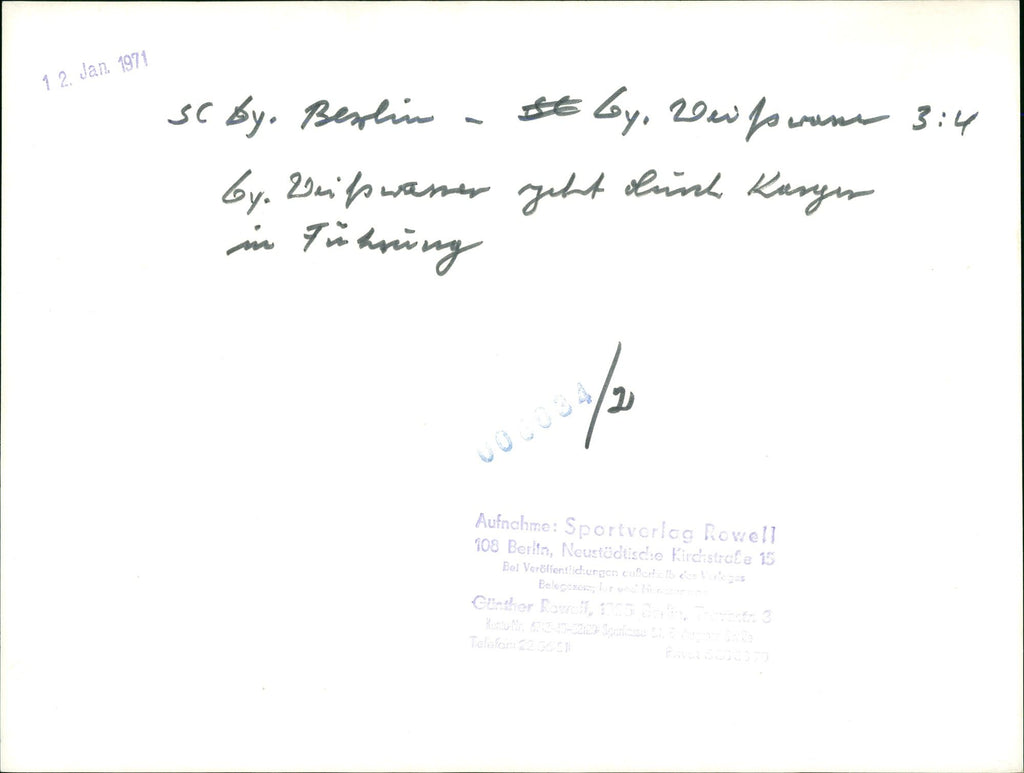 12. Jan. 1971
SC Dy. Berlin - SC Dy. Weißwasser 3:4
Dy. Weißwasser geht durch Karger
in Führung
000034/2
Aufnahme: Sportverlag Rowell
108 Berlin, Neustädtische Kirchstraße 15
Bei Veröffentlichungen außerhalb des Verlages
Belegexemplar und
Günther Rowell, Berlin,
Telefon: